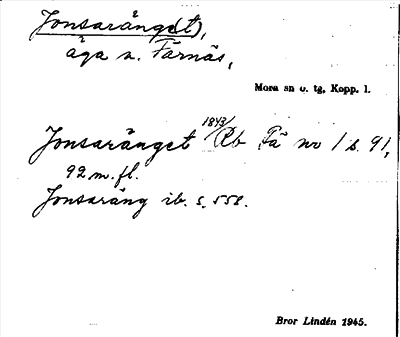 Jonsaränge(t),
äga n. Färnäs,
Mora sn o. tg, Kopp. l.
Jonsaränget 1843/ Rb Fä no 1 s. 91,
92 m. fl.
Jonsaräng ib. s. 558.
Bror Lindén 1945.